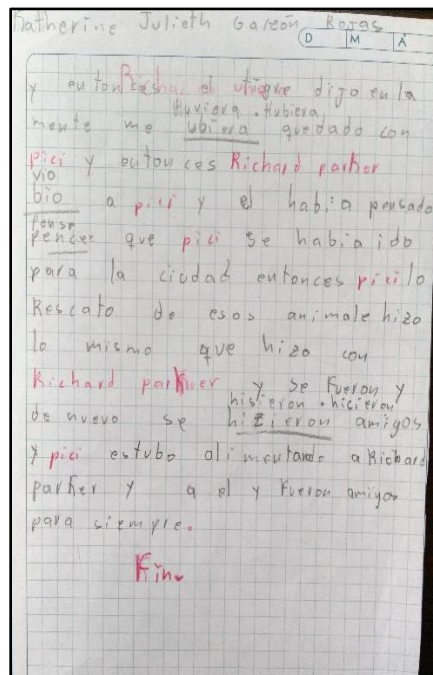 Katherine Julieth Galzón Rojas
D M A
y enton Richar el utigre dijo en la
Huviera . Hubiera
mente me ubiera quedado con
pici y entonces Richard parker
vio
bio a pici y el habia pensado
pense
pence que pici se habia ido
para la ciudad entonces pici lo
Rescato de esos animale hizo
lo mismo que hizo con
Richard parker y se Fueron y
histieron . hicieron
de nuevo se hizieron amigos
y pici estubo alimentando a Richard
parker y a el y Fueron amigos
para siempre.
Fin.